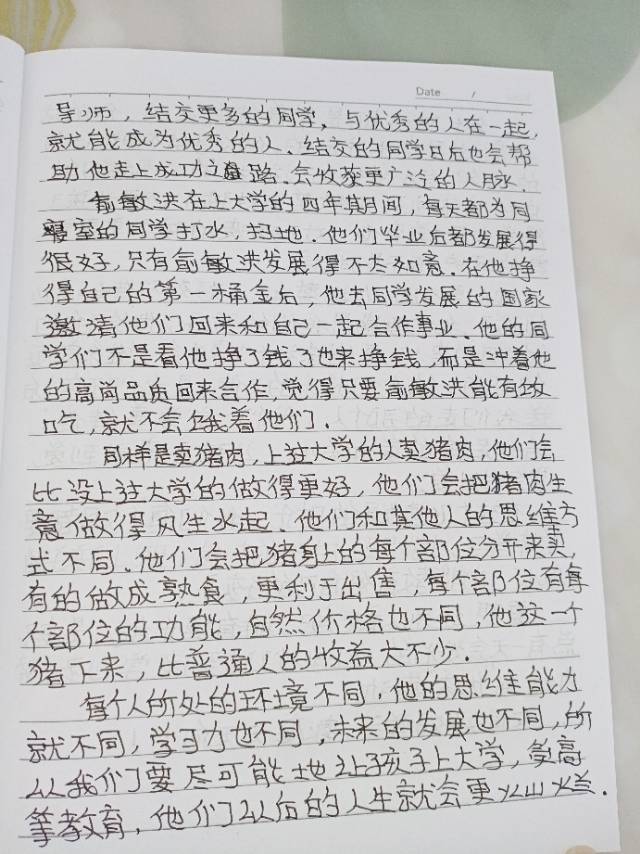 Date /
导师，结交更多的同学，与优秀的人在一起，
就能成为优秀的人、结交的同学日后也会帮
助他走上成功之路、会收获更广泛的人脉．
俞敏洪在上大学的四年其月间，每天都为同
寝室的同学打水，扫地．他们毕业后都发展得
很好，只有俞敏洪发展得不太如意．在他挣
得自己的第一桶金后，他去同学发展的国家
邀请他们回来和自己一起合作事业．他的同
学们不是看他挣了钱了也来挣钱，而是冲着他
的高尚品质回来合作，觉得只要俞敏洪能有
口吃，就不会饿着他们．
同样是卖猪肉，上过大学的人卖猪肉，他们会
比没上过大学的做得更好，他们会把猪肉生
意做得风生水起．他们和其他人的思维方
式不同．他们会把猪身上的每个部位分开来卖，
有的做成熟食，更利于出售，每个部位有每
个部位的功能，自然价格也不同，他这一个
猪下来，比普通人的收益大不少．
每个人所处的环境不同，他的思维能力
就不同，学习力也不同，未来的发展也不同，所
以我们要尽可能地让孩子上大学，受高
等教育，他们以后的人生就会更火山火兰．